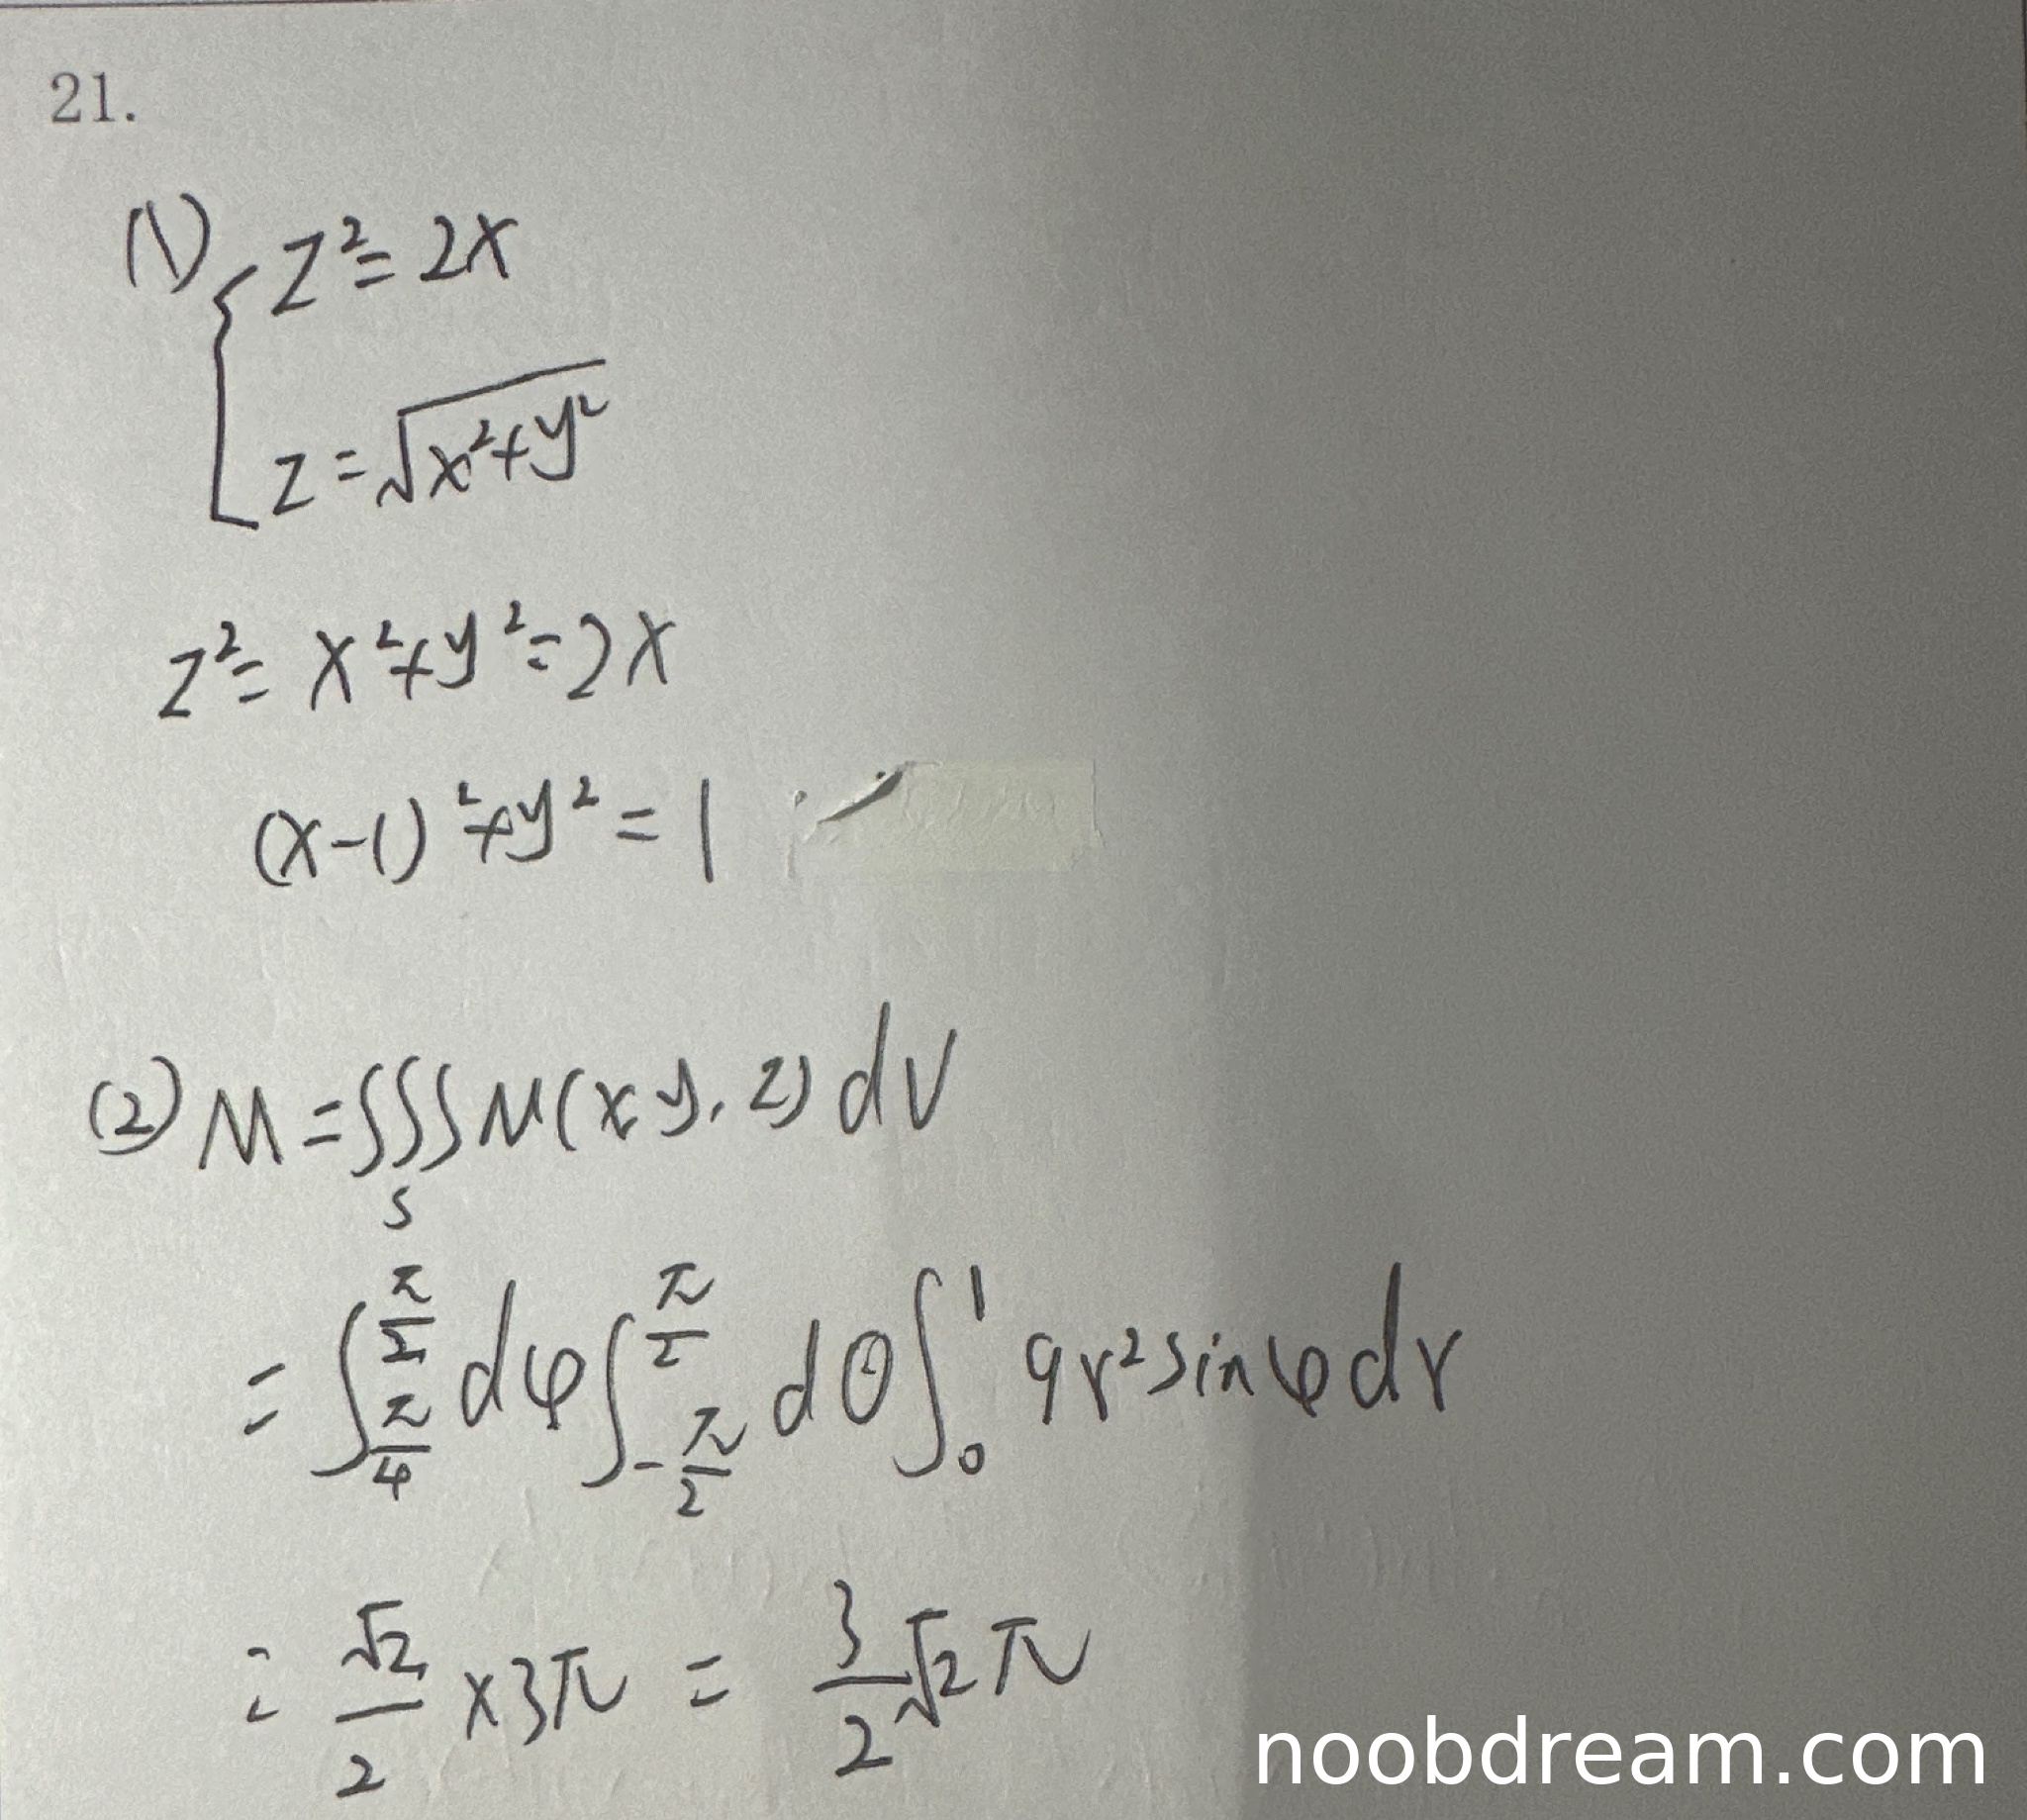 21.
(1) { z² = 2x
z = √(x²+y²)
z² = x²+y² = 2x
(x-1)²+y² = 1
(2) M = ∫∫∫_S μ(x y, z) dV
= ∫_{π/4}^{π/2} dφ ∫_{-π/2}^{π/2} dθ ∫_0^1 9r² sinφ dr
= √2/2 × 3π = 3/2 √2 π
noobdream.com